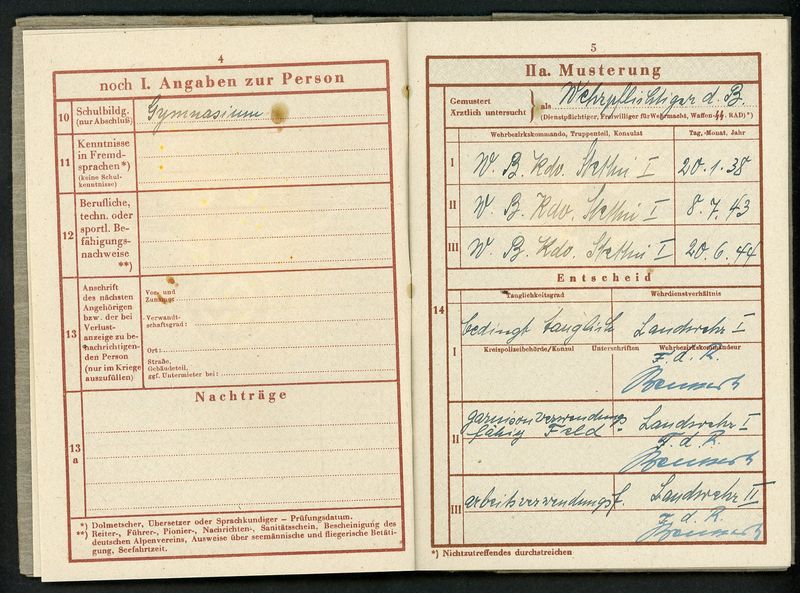 4
noch I. Angaben zur Person
10 Schulbildg. (nur Abschluß)
Gymnasium
11 Kenntnisse in Fremd-
sprachen*)
(keine Schul-
kenntnisse)
12 Berufliche,
techn. oder
sportl. Be-
fähigungs-
nachweise
**)
13 Anschrift
des nächsten
Angehörigen
bzw. der bei
Verlust-
anzeige zu be-
nachrichtigen-
den Person
(nur im Kriege
auszufüllen)
Vor- und
Zuname:
Verwandt-
schaftsgrad:
Ort:
Straße,
Gebäudeteil,
ggf. Untermieter bei:
Nachträge
13
a
*) Dolmetscher, Übersetzer oder Sprachkundiger – Prüfungsdatum.
**) Reiter-, Führer-, Pionier-, Nachrichten-, Sanitätsschein, Bescheinigung des
deutschen Alpenvereins, Ausweise über seemännische und fliegerische Betäti-
gung, Seefahrtzeit.
5
IIa. Musterung
Gemustert
Ärztlich untersucht } als Wehrpflichtiger d. B.
(Dienstpflichtiger, Freiwilliger für Wehrmacht, Waffen-SS, RAD)*)
Wehrbezirkskommando, Truppenteil, Konsulat
Tag, Monat, Jahr
I W. B. Kdo. Stettin I 20.1.38
II W. B. Kdo. Stettin I 8.7.43
III W. B. Kdo. Stettin I 20.6.44
14
Entscheid
Tauglichkeitsgrad
Wehrdienstverhältnis
I bedingt tauglich Landwehr I
Kreispolizeibehörde/Konsul Unterschriften Wehrbezirkskommandeur
F. d. R.
II garnisonverwendungs-
fähig Feld Landwehr I
F. d. R.
III arbeitsverwendungsf. Landwehr II
F. d. R.
*) Nichtzutreffendes durchstreichen